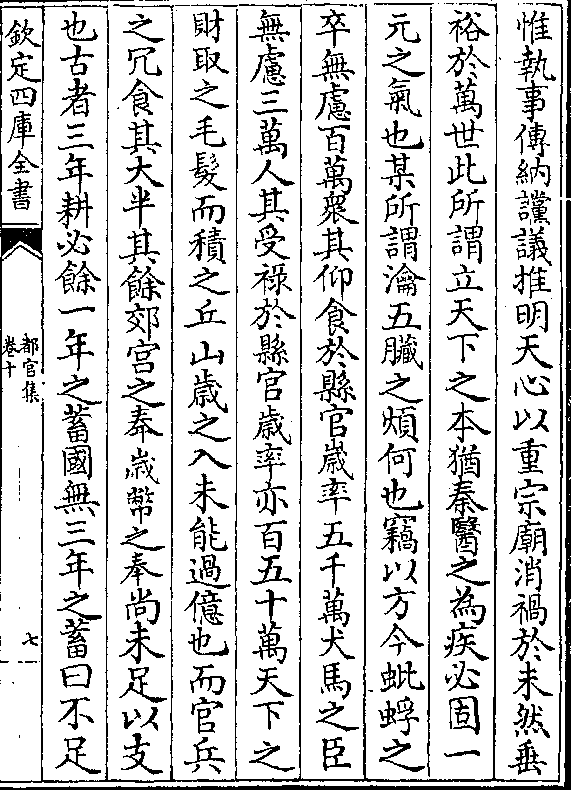 惟執事傳納讜議推明天心以重宗廟消禍於未然垂
裕於萬世此所謂立天下之本猶秦醫之為疾必固一
元之氣也某所謂瀹五臟之煩何也竊以方今蚍蜉之
卒無慮百萬衆其仰食於縣官歲率五千萬犬馬之臣
無慮三萬人其受祿於縣官歲率亦百五十萬天下之
財取之毛髮而積之丘山歲之入未能過億也而官兵
之冗食其大半其餘郊宫之奉歲幣之奉尚未足以支
也古者三年耕必餘一年之蓄國無三年之蓄曰不足
欽定四庫全書
都官集
卷十
七